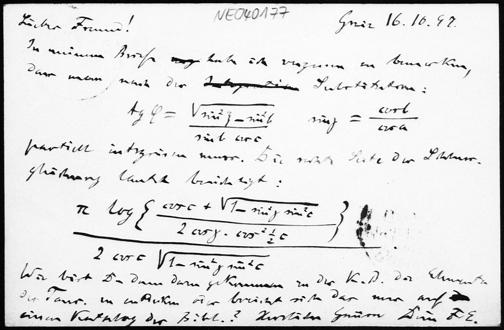 NE040177
Lieber Freund! Graz 16.10.97.
In meinem Briefe habe ich vergessen zu bemerken,
dass man nach der Substitution:
tg φ = √(sin²γ − sin²b) / (sin b cos c) sin γ = cos b / cos a
partiell integrieren muss. Die rechte Seite der Schluss-
gleichung lautet berichtigt:
π log { (cos c + √(1 − sin²γ sin²c)) / (2 cos γ · cos² ½ c) }
2 cos c √(1 − sin²γ sin²c)
Wie bist Du denn dazu gekommen in der K. B. der Elemente
der zu oder bezieht sich das nur auf
einen Katalog der Bibl.? Herzlichen Gruss Dein F. E.